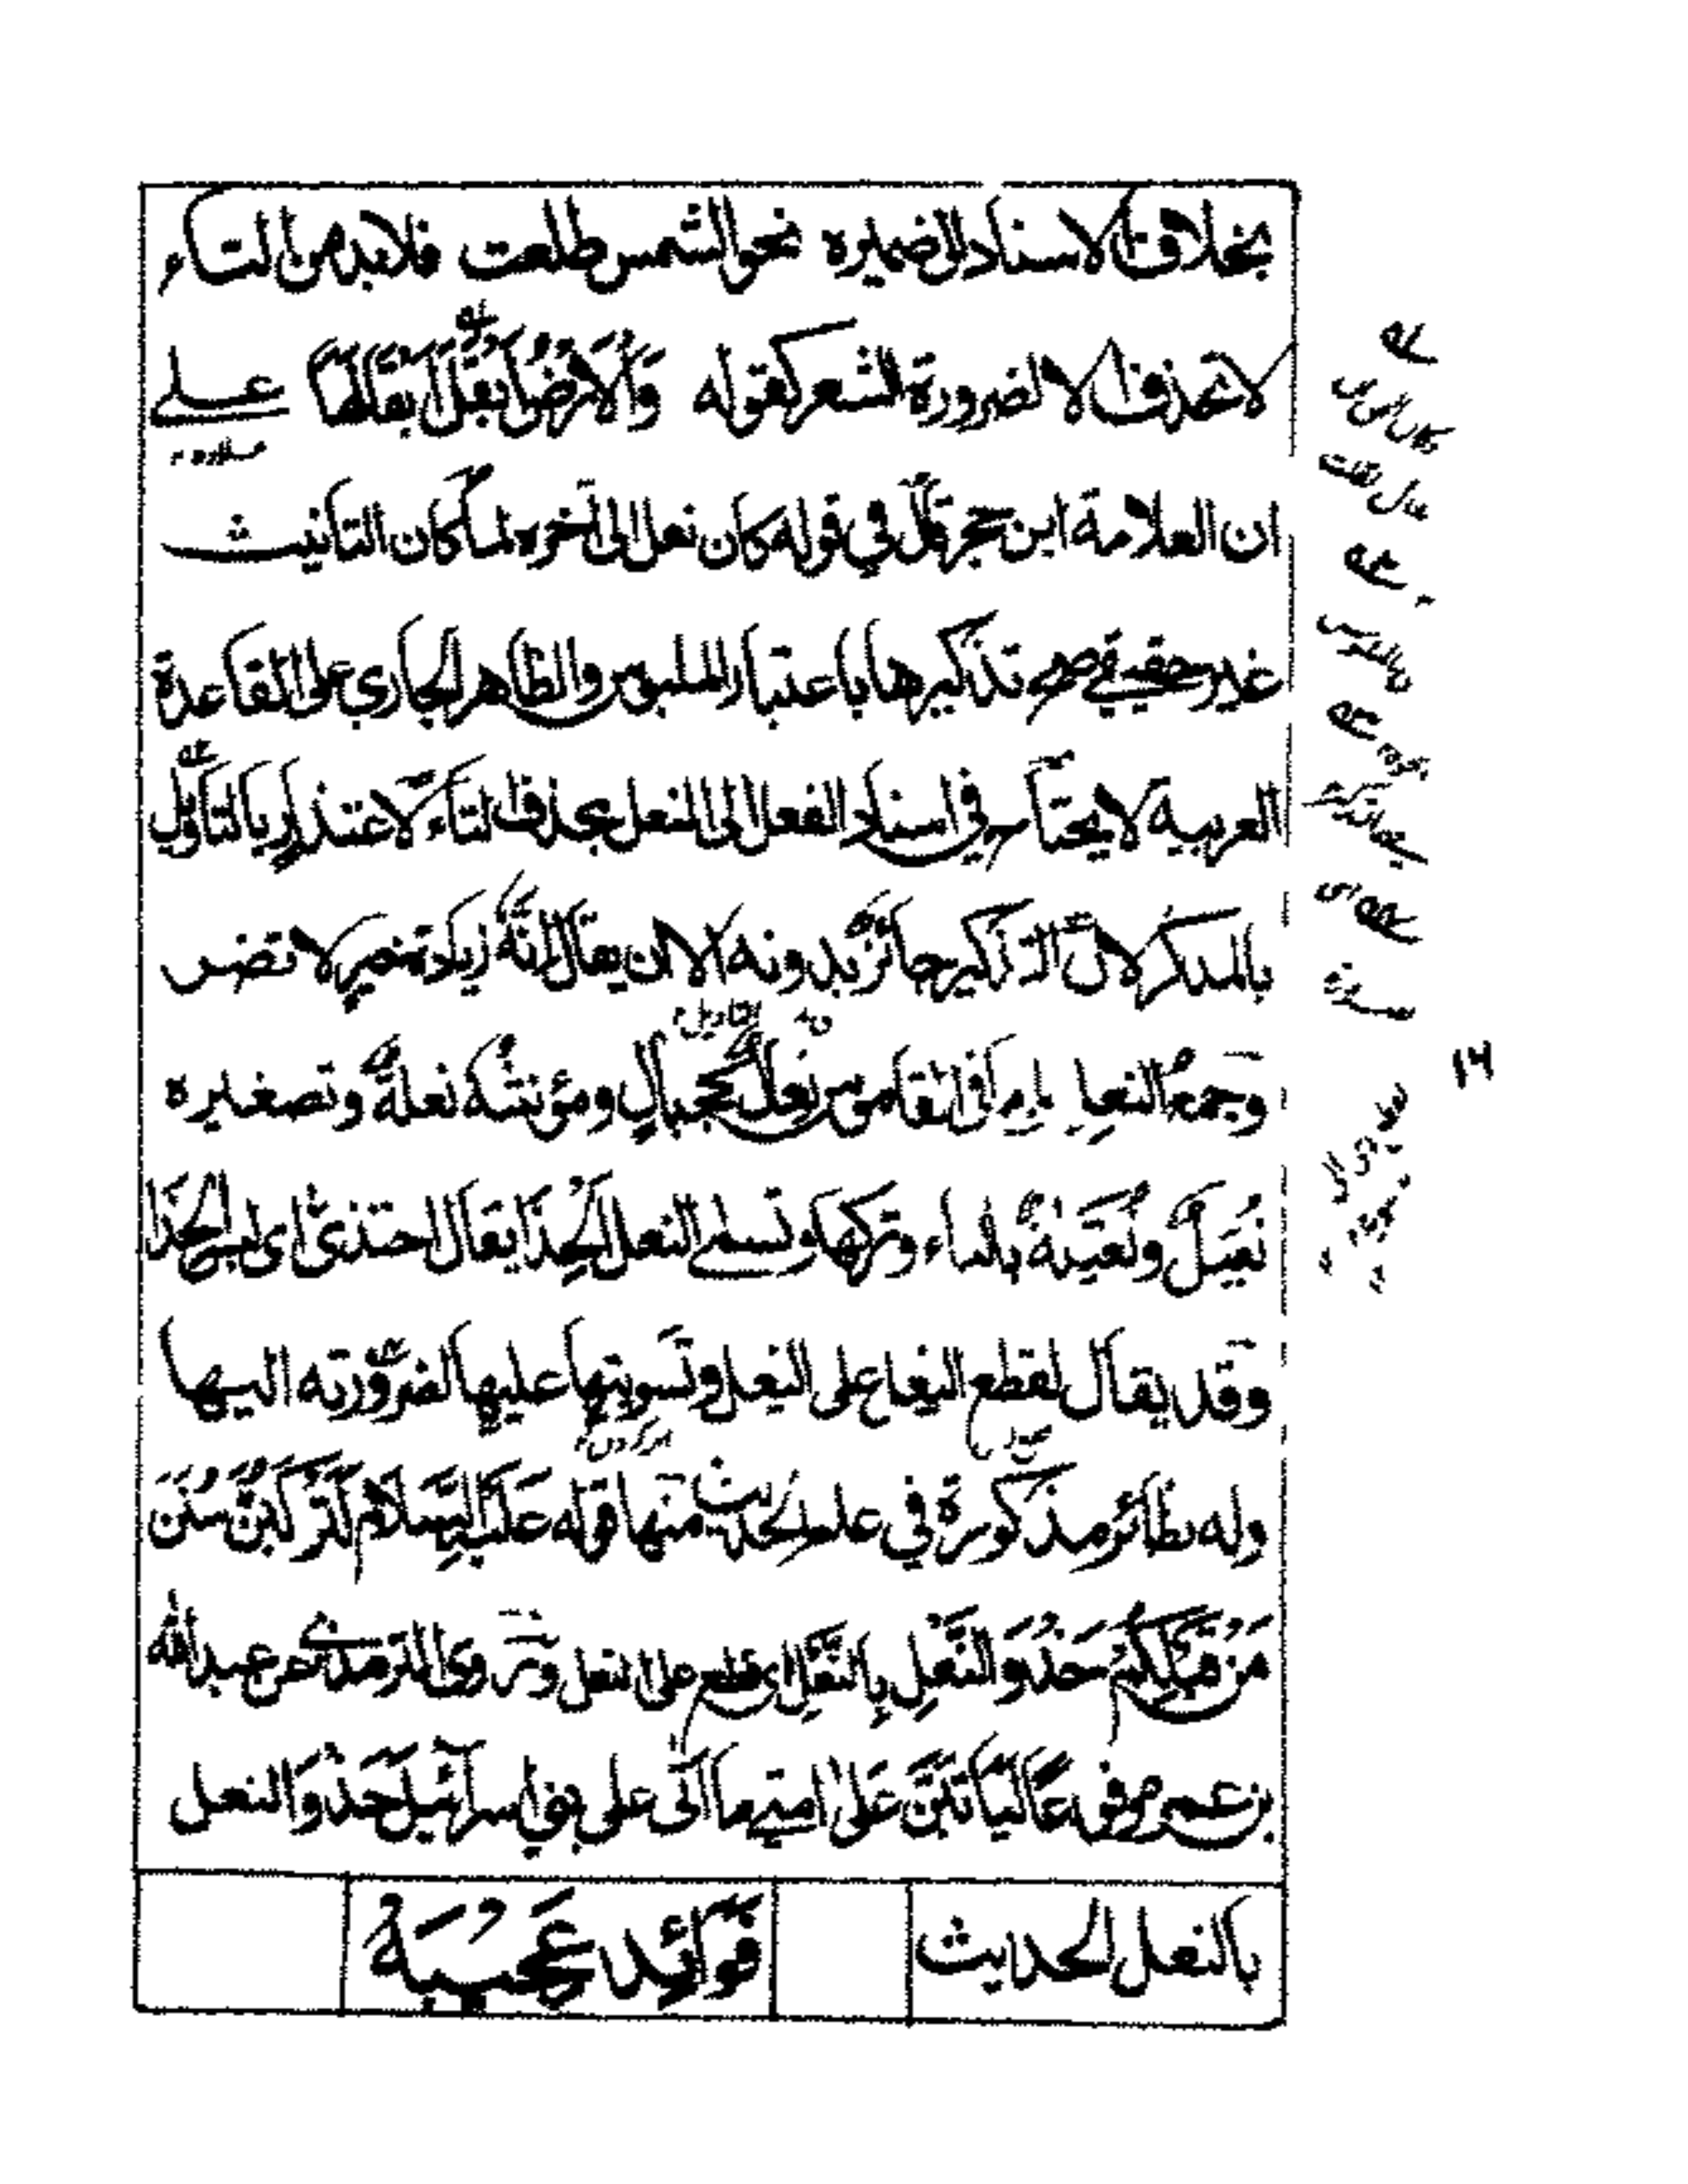 بخلاف الاسناد الى ضميره نحو الشمس طلعت فلا بد من التاء
لا تحذف الا لضرورة الشعر كقوله وَالْاَرْضُ اَبْقَلَ اِبْقَالَهَا على
ان العلامة ابن حجر قال في قوله كان نعل الى آخره لما كان التأنيث
غير حقيقي صح تذكيرها باعتبار الملبوس والظاهر الجاري على القاعدة
العربية لا يحتاج في اسناد الفعل الى النعل بحذف التاء لاعتذارٍ بالتأويل
بالمذكر لان التذكير جائز بدونه الا ان يقال انه زيادة خيرٍ لا تضر
وجمع النعل في القاموس نعال كجبالٍ ومؤنثه نعلةٌ وتصغيره
نُعَيْلٌ ونُعَيْلَةٌ بالتاء وتركها وتسمى النعل الحِذَا يقال احتذى اى لبس الحِذَا
وقد يقال لقطع النعل على النعل وتسويتها عليها لضرورته اليها
وله نظائر مذكورة في علم الحديث منها قوله عَلَيْهِ السَّلَام لَتَرْكَبُنَّ سُنَنَ
مَنْ قَبْلِكُمْ حَذْوَ النَّعْلِ بِالنَّعْلِ اى قطع على النعل وروى الترمذى عن عبد الله
بن عمر مرفوعًا لَيَأتِيَنَّ عَلٰى امتي ما اتى على بني اسرآئيل حَذْوَ النعل
بالنعل الحديث
فَوَائِد عَجِيبَة
١٦